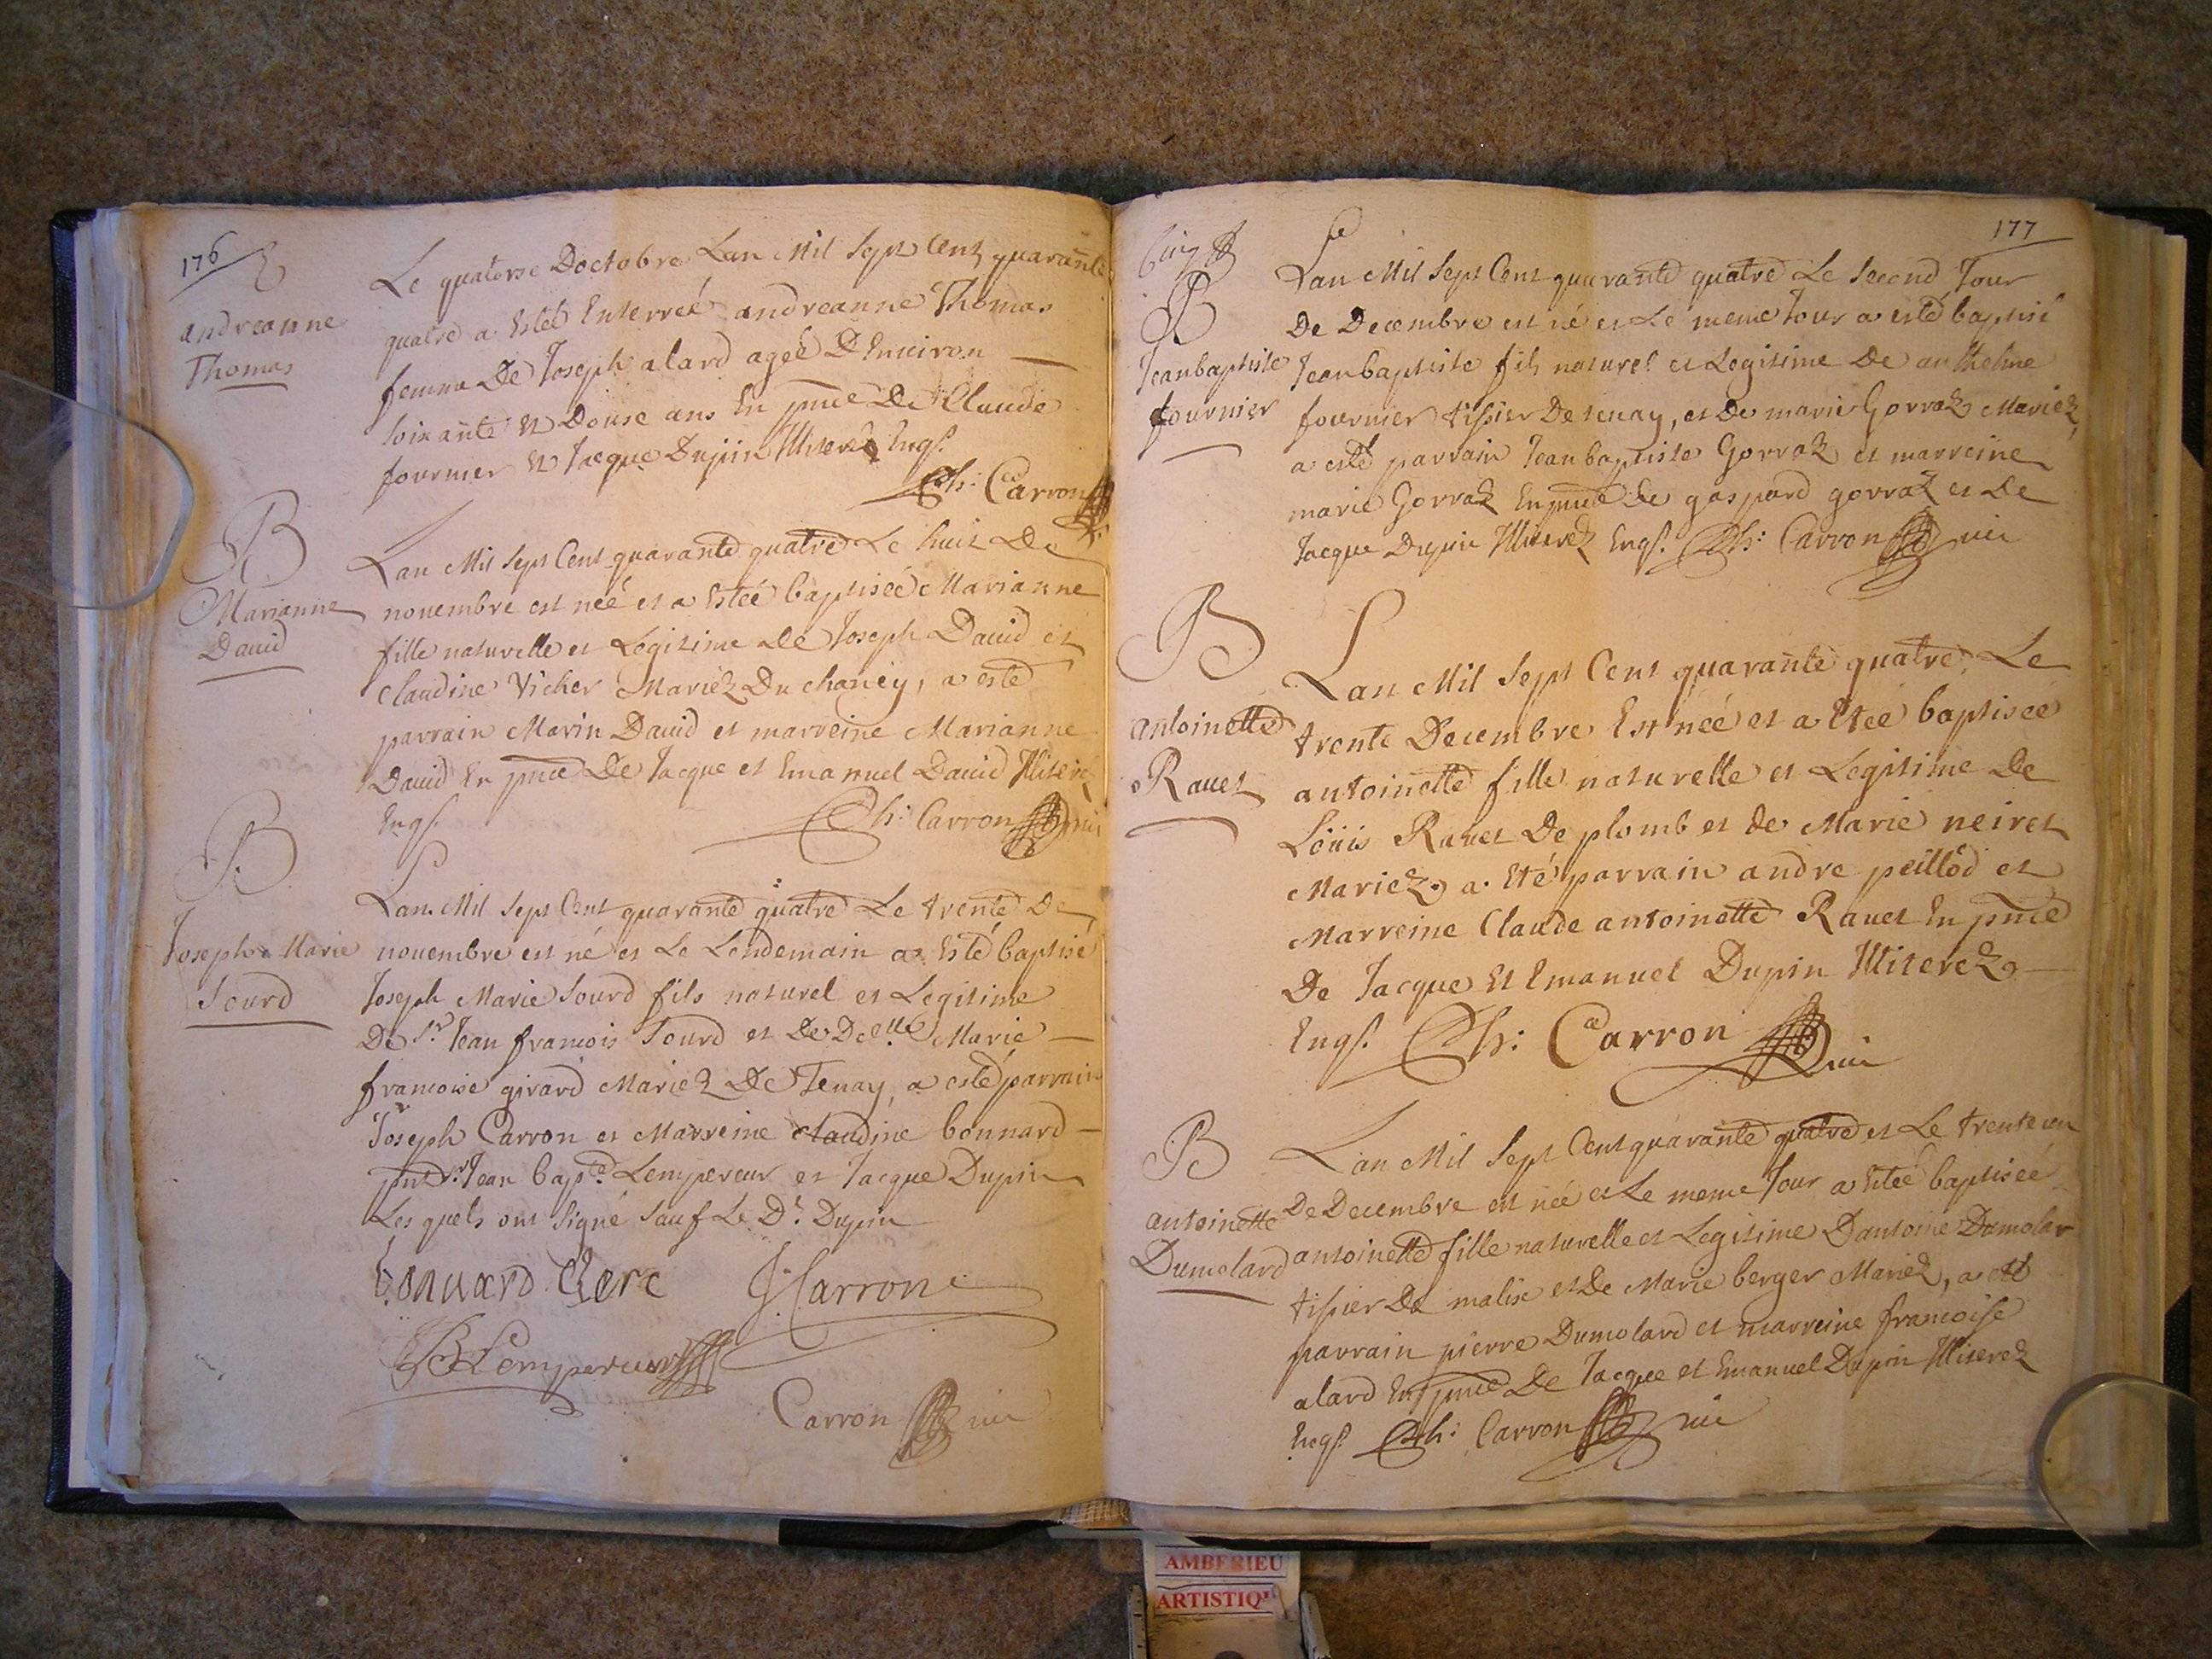 176
andreanne
Thomas
Le quatorse Doctobre Lan Mil Sept Cent quarante
quatre a estéé Enterreé andreanne Thomas
femme De Joseph alard ageé DEnuiron
soixante et Douse ans En pnce De Claude
fournier et Jacque Dupin Illiterez Engs.
Ph: Carron
B
Marianne
Dauid
Lan Mil Sept Cent quarante quatre Le huit De
nouembre est néé et a estéé baptiséé Marianne
fille naturelle et Legitime De Joseph Dauid et
Claudine Vicher Mariéz Du chaney, a esté
parrain Marin Dauid et marreine Marianne
Dauid En pnce De Jacque et Emanuel Dauid Illiteréz
Engs.
Ph: Carron
B
Joseph Marie
Sourd
Lan Mil Sept Cent quarante quatre Le trente De
nouembre est né et Le Lendemain a esté baptisé
Joseph Marie Sourd fils naturel et Legitime
De Sr. Jean francois Sourd et De Delle Marie
francoise girard Mariez De Tenay, a esté parrain
Joseph Carron et Marreine claudine bonnard
pnt Sr. Jean bapte. Lempereur et Jacque Dupin
Les quels ont signé sauf Le Dt. Dupin
bonuard Clerc J: Carron
JB Lempereur
Carron uic
177
B
Jeanbaptiste
fournier
Lan Mil Sept Cent quarante quatre Le second Jour
De Decembre est né et Le meme Jour a esté baptisé
Jeanbaptiste fils naturel et Legitime De anthelme
fournier tissier De tenay, et De marie Gorraz Mariez,
a esté parrain Jean baptiste Gorraz et marreine
marie Gorraz En pnce De gaspard gorraz et De
Jacque Dupin Illiterez Engs. Ph: Carron uic
B
antoinette
Rauet
Lan Mil Sept Cent quarante quatre Le
trente Decembre Est néé et a Etéé baptiséé
antoinette fille naturelle et Legitime De
Loüis Rauet De plomb et de Marie neiret
Mariez, a Eté parrain andre peillod et
Marreine Claude antoinette Rauet En pnce
De Jacque Et Emanuel Dupin Illiterez
Engs. Ph: Carron uic
B
antoinette
Dumolard
Lan Mil Sept Cent quarante quatre et Le trente un
De Decembre est néé et Le meme Jour a estéé baptiséé
antoinette fille naturelle et Legitime Dantoine Dumolar
tissier De malix et De Marie berger Mariez, a esté
parrain pierre Dumolard et marreine francoise
alard En pnce De Jacque et Emanuel Dupin Illiterez
Engs. Ph: Carron uic
AMBERIEU
ARTISTIQ